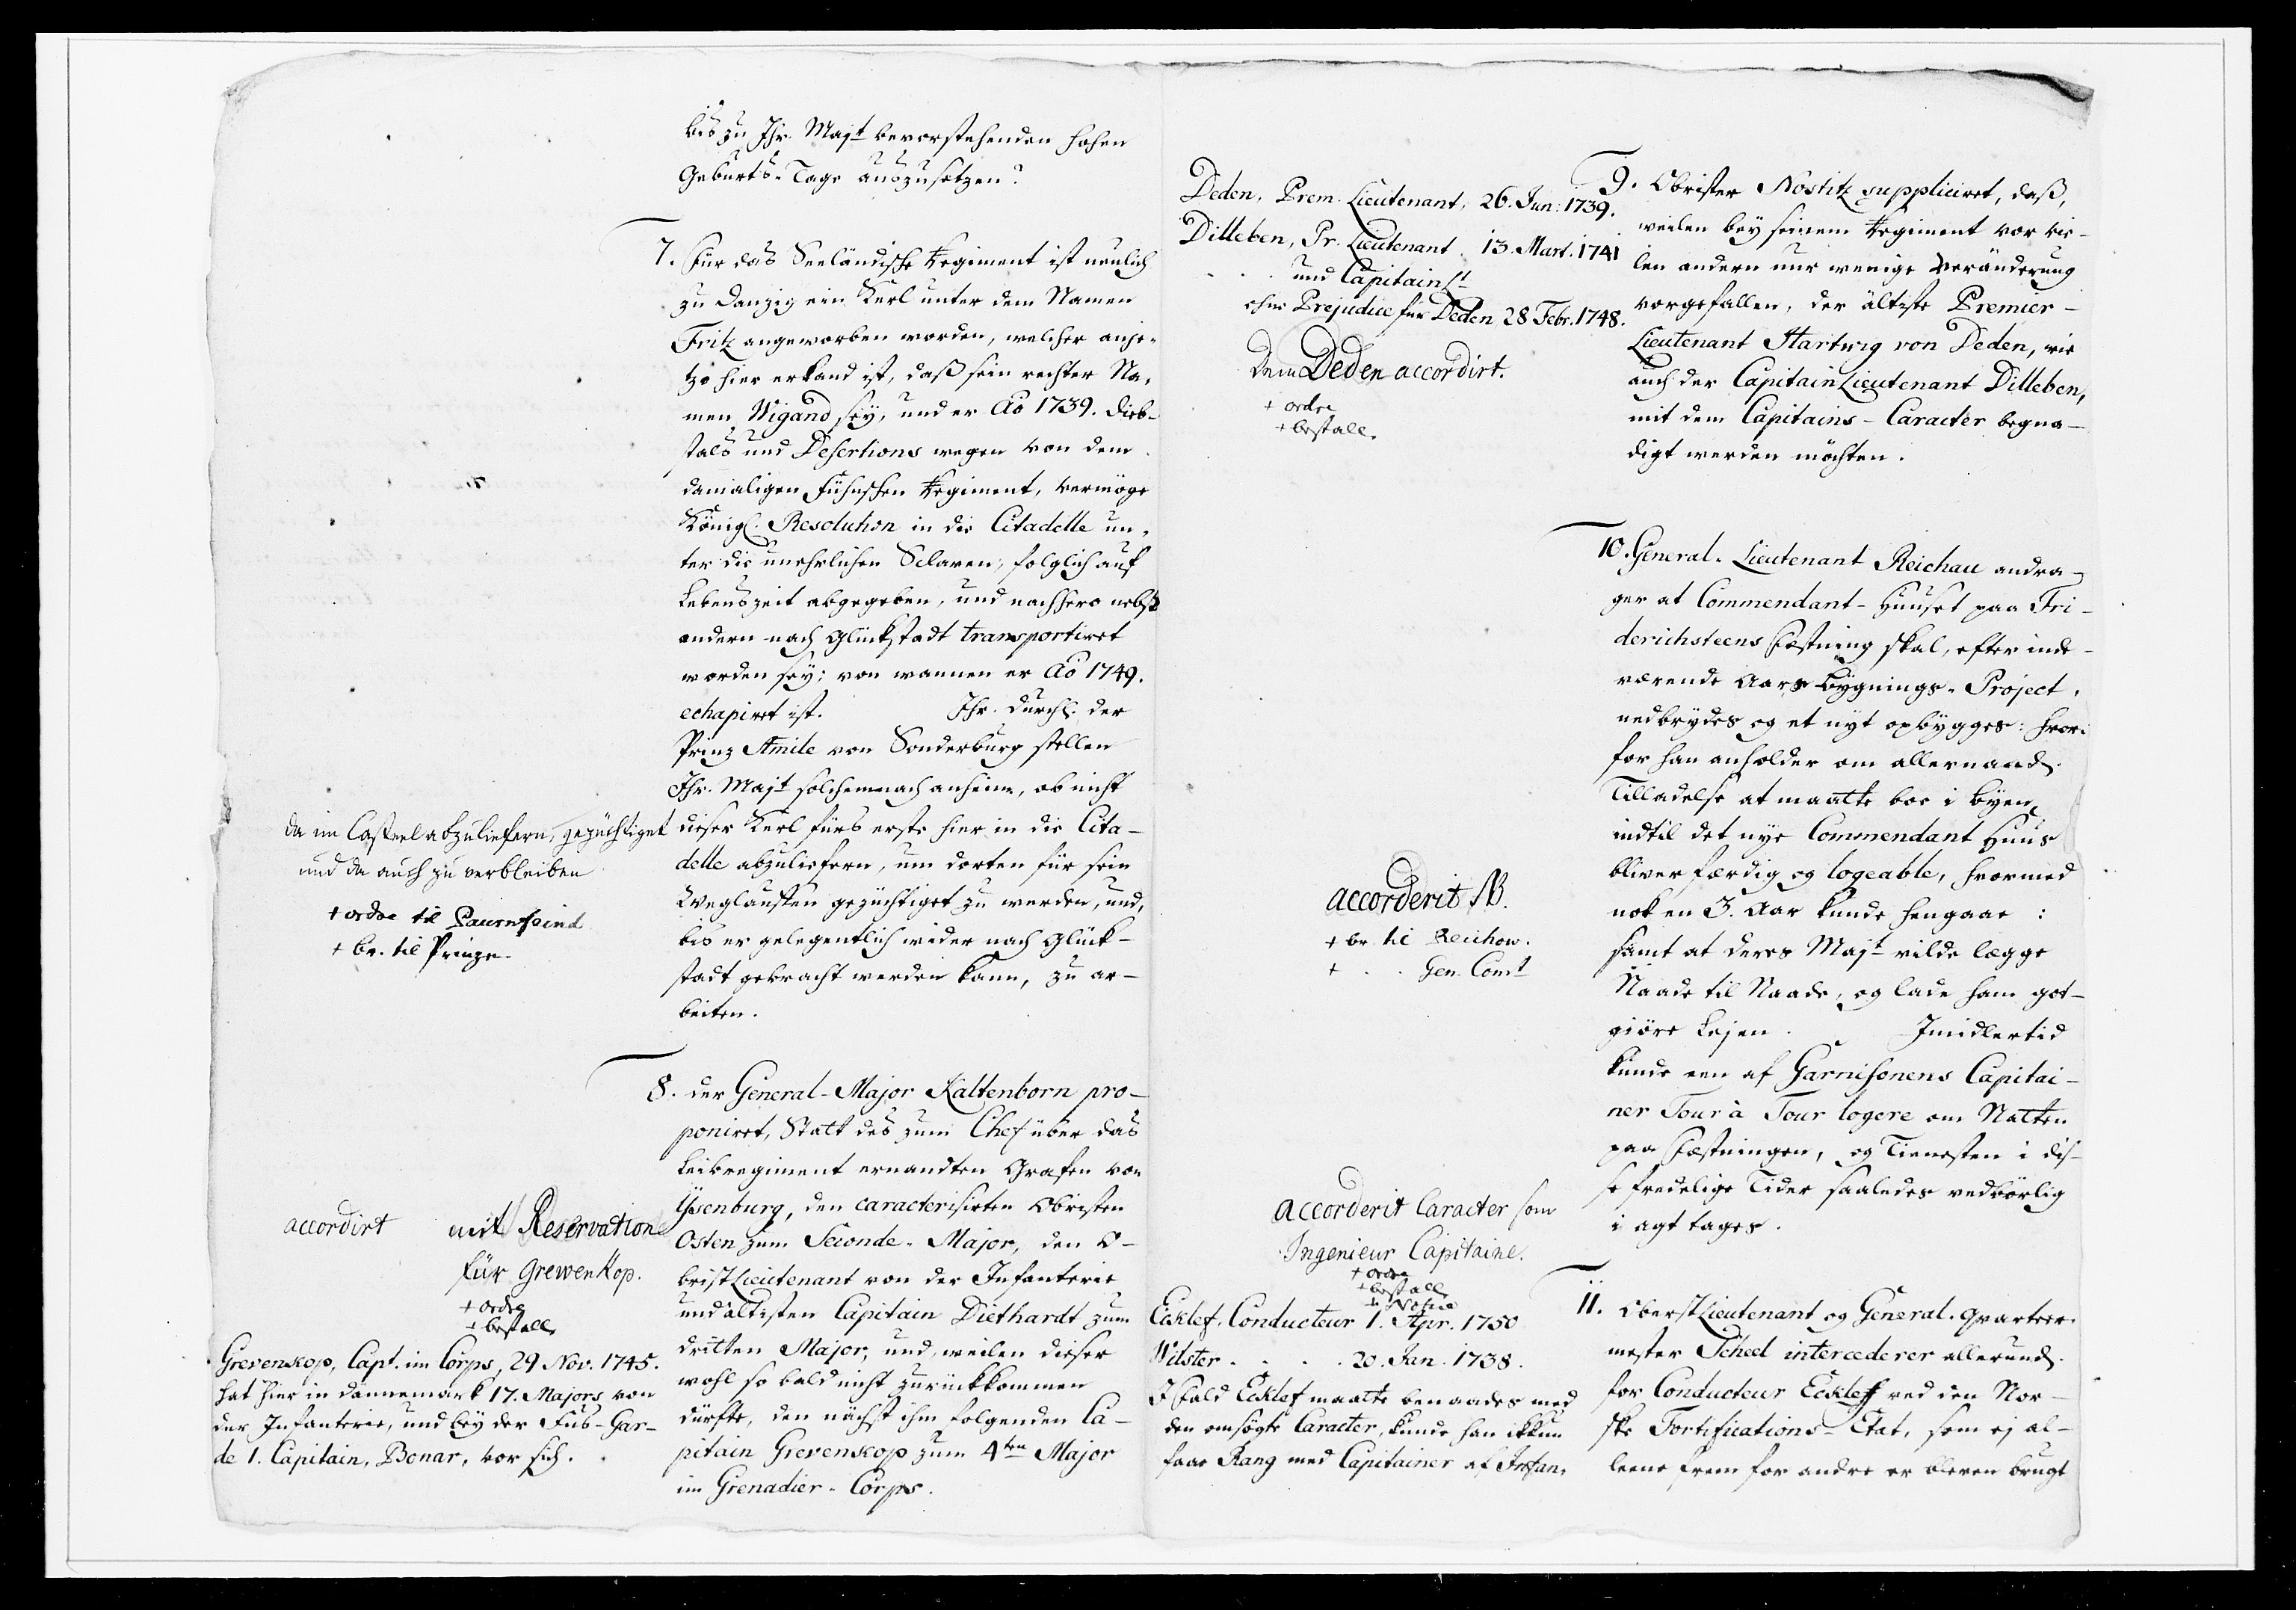 bis zu Ihr. Majt bevorstehenden hohen
Geburts-Tage auszusetzen?
7. Für das Seeländische Regiment ist neulich
zu Danzig ein Kerl unter dem Namen
Fritz angeworben worden, welcher anje-
tzo hier erkand ist, daß sein rechter Na-
men Wigand sey, und er Ao 1739. Dieb-
stals und Desertions wegen von dem
damaligen Fühnschen Regiment, vermöge
Königl. Resolution in die Citadelle un-
ter die unehrlichen Sclaven, folglich auf
Lebenszeit abgegeben, und nachhero nebst
andern nach Glückstadt transportiret
worden sey; von wannen er Ao 1749.
echapiret ist. Ihr. Durchl. der
Prinz Emile von Sonderburg stellen
Ihr. Majt solchemnach anheim, ob nicht
dieser Kerl fürs erste hier in die Cita-
delle abzuliefern, um dorten für sein
Weglauffen gezüchtiget zu werden, und,
bis er gelegentlich wider nach Glück-
stadt gebracht werden kann, zu ar-
beiten.
da im Casteel abzuliefern, gezüchtiget
und da auch zu verbleiben
+ ordre til Paurnfeind
+ br. til Prinzen
8. der General-Major Kaltenborn pro-
poniret, Statt des zum Chef über das
Leibregiment ernandten Grafen von
Ysenburg, den caracterisirten Obristen
Osten zum Seconde-Major, den O-
bristLieutenant von der Infanterie
und ältisten Capitain Diethardt zum
dritten Major, und, weilen dieser
wohl so bald nicht zurückkommen
dürfte, den nächst ihm folgenden Ca-
pitain Grevenkop zum 4ten Major
im Grenadier-Corps.
accordirt mit Reservation
für Grewenkop.
+ ordre
+ bestall.
Grevenkop, Capt. im Corps, 29 Nov. 1745.
hat hier in Dännemark 17. Majors von
der Infanterie, und bey der Fus-Gar-
de 1. Capitain, Bonar, vor sich.
Deden, Prem. Lieutenant, 26. Jun: 1739.
Dilleben, Pr. Lieutenant. 13. Mart. 1741
. . . und Capitain Lt
ohne Prejudice für Deden 28 Febr. 1748.
Dem Deden accordirt.
+ ordre
+ bestall.
9. Obrister Nostitz suppliciret, daß,
weilen bey seinem Regiment vor vie-
len andern nur wenige Veränderung
vorgefallen, der ältiste Premier-
Lieutenant Hartwig von Deden, wie
auch der CapitainLieutenant Dilleben,
mit dem Capitains-Caracter begna-
digt werden möchten.
10. General-Lieutenant Reichau andra-
ger at Commendant-Huuset paa Fri-
derichsteens Fæstning skal, efter inde-
værende Aars Bygnings-Project,
nedbrydes og et nyt opbygges: hvor-
for han anholder om allernaad.
Tilladelse at maatte boe i Byen,
indtil det nye Commendant Huus
bliver færdig og logeable, hvormed
nok en 3. Aar kunde hengaae :
samt at Deres Majt vilde lægge
Naade til Naade, og lade ham got-
giöre Lejen. Imidlertid
kunde een af Garnisonens Capitai-
ner Tour à Tour logere om Natten
paa Fæstningen, og Tienesten i dis-
se fredelige Tider saaledes vedbörlig
i agt tages.
accorderit NB.
+ br. til Reichow.
+ . . Gen. Comt
11. OberstLieutenant og General-Qvarteer-
mester Scheel intercederer allerund.
for Conducteur Ecklef ved den Nor-
ske Fortifications-Etat, som ej al-
leene frem for andre er bleven brugt
accorderit Caracter som
Ingenieur Capitaine.
+ ordre
+ bestall.
+ Notice
Ecklef, Conducteur 1. Apr. 1750
Wilster . . . . 20. Jan. 1738.
Ifald Ecklef maatte benaades med
den ansögte Caracter, kunde han ikkun
faae Rang med Capitainer af Infan-